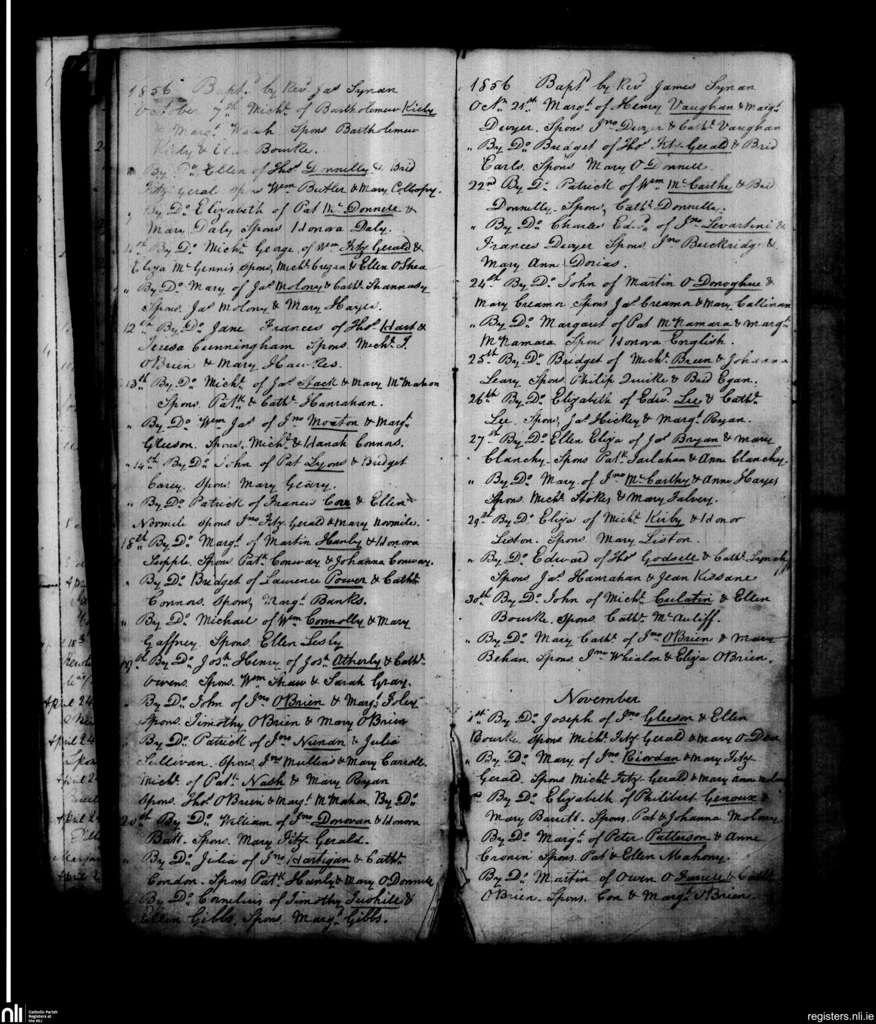 1856 Bapd by Revd Jas Synan
October 7th Michl of Bartholemew Kirby
& Margt Walsh Spons Bartholemew
Kirby & Bourke.
" By Do Ellen of Thos Donnelly & Brid
Fitz Gerald spons Wm Butler & Mary
" By Do Elizabeth of Pat Mc Donnell &
Mary Daly Spons Honora Daly.
By Do Michl George of Wm Fitz Gerald &
Eliza Mc Gennis spons, Michl Cregan & Ellen O'Shea
" By Do Mary of Jas Molony & Cathe Shannasy
Spons. Jas Molony & Mary Hayes.
12th By Do Jane Frances of Thos Hart &
Teresa Cunningham Spons. Michl J.
O'Brien & Mary Hawkes.
13th By Do Michl of Jas Stack & Mary Mc Mahon
Spons. Patk & Cathe Hanrahan.
" By Do Wm Jas of Jno & Margt
Gleeson. Spons. Michl & Hanah Connors.
" 14th By Do John of Pat Lyons & Bridget
Carey. Spons Mary Geary.
" By Do Patrick of Francis & Ellen
Normile spons Jno Fitz. Gerald & Mary Normile.
By Do Margt of Martin Hanly & Honora
Supple. Spons Patk Conway & Johanna Conway.
" By Do Bridget of Laurence Power & Cathe
Connors. Spons, Margt Banks.
" By Do Michael of Wm Connolly & Mary
Gaffney Spons. Ellen
19th By Do Josh Henry of Josh Atherly & Cathe
Owens. Spons. Wm Shaw & Sarah Gray.
" By Do John of Jno O'Brien & Margt Foley
Spons. Timothy O'Brien & Mary O'Brien
" By Do Patrick of Jno Nunan & Julia
Sullivan. Spons. Jno Mullins & Mary Carroll.
Michl of Patk Nash & Mary Ryan
Spons. Thos O'Brien & Margt McMahon By Do
20th By Do William of Jno Donovan & Honora
Batt. Spons. Mary Fitz Gerald.
" By Do Julia of Jno Hartigan & Cathe
Condon. Spons Patk Hanly & Mary O'Donnell
By Do Cornelius of Timothy Tuohill &
Ellen Gibbs. Spons. Margt Gibbs.
1856 Bapd by Revd James Synan
21st Margt of Henry Vaughan & Margt
Dwyer. Spons, Jno Dwyer & Cathe Vaughan
" By Do Bridget of Thos Fitz Gerald & Brid
Earls. Spons Mary O'Donnell.
22nd By Do Patrick of Wm McCarthy & Brid
Donnelly. Spons, Cathe Donnelly.
" By Do Charles Edwd of Jno Levartini &
Frances Dwyer Spons. Jno Buckridge &
Mary Ann
24th By Do John of Martin O Donoghue &
Mary Creamer Spons Jas Creamer & Mary Callinan
" By Do Margaret of Pat McNamara & Margt
McNamara Spons Honora English.
25th By Do Bridget of Michl Breen & Johanna
Leary Spons. Philip Quirke & Brid Egan.
26th By Do Elizabeth of Edw. Lee & Cathe
Lee. Spons, Jas Hickey & Margt Ryan.
27th By Do Ellen Eliza of Jas Bryan & Mary
Clanchy. Spons Patk & Anne Clanchy.
" By Do Mary of Jno McCarthy & Anne Hayes
Spons. Michl Stokes & Mary Falvey.
29th By Do Eliza of Michl Kirby & Honor
Liston. Spons. Mary Liston.
" By Do Edward of Thos Godsell & Cathe Lynch
Spons Jas Hanrahan & Jean Kissane
30th By Do John of Michl & Ellen
Bourke. Spons. Cathe McAuliff.
" By Do Mary Cathe of Jno O'Brien & Mary
Behan. Spons. Jno & Eliza O'Brien.
November
1st By Do Joseph of Jno Gleeson & Ellen
Bourke spons Michl Fitz Gerald & Mary
" By Do Mary of Jno Riordan & Mary Fitz
Gerald. Spons Michl Fitz. Gerald & Mary Anne
By Do Elizabeth of Philibert Genoux &
Mary Barrett. Spons. Pat & Johanna Molony
By Do Margt of Peter Patterson & Anne
Cronin Spons. Pat & Ellen Mahony.
By Do Martin of Owen O & Cathe
O'Brien. Spons. Con & Margt O'Brien
April 24
April 24
nli
Catholic Parish
Registers at
the NLI
registers.nli.ie